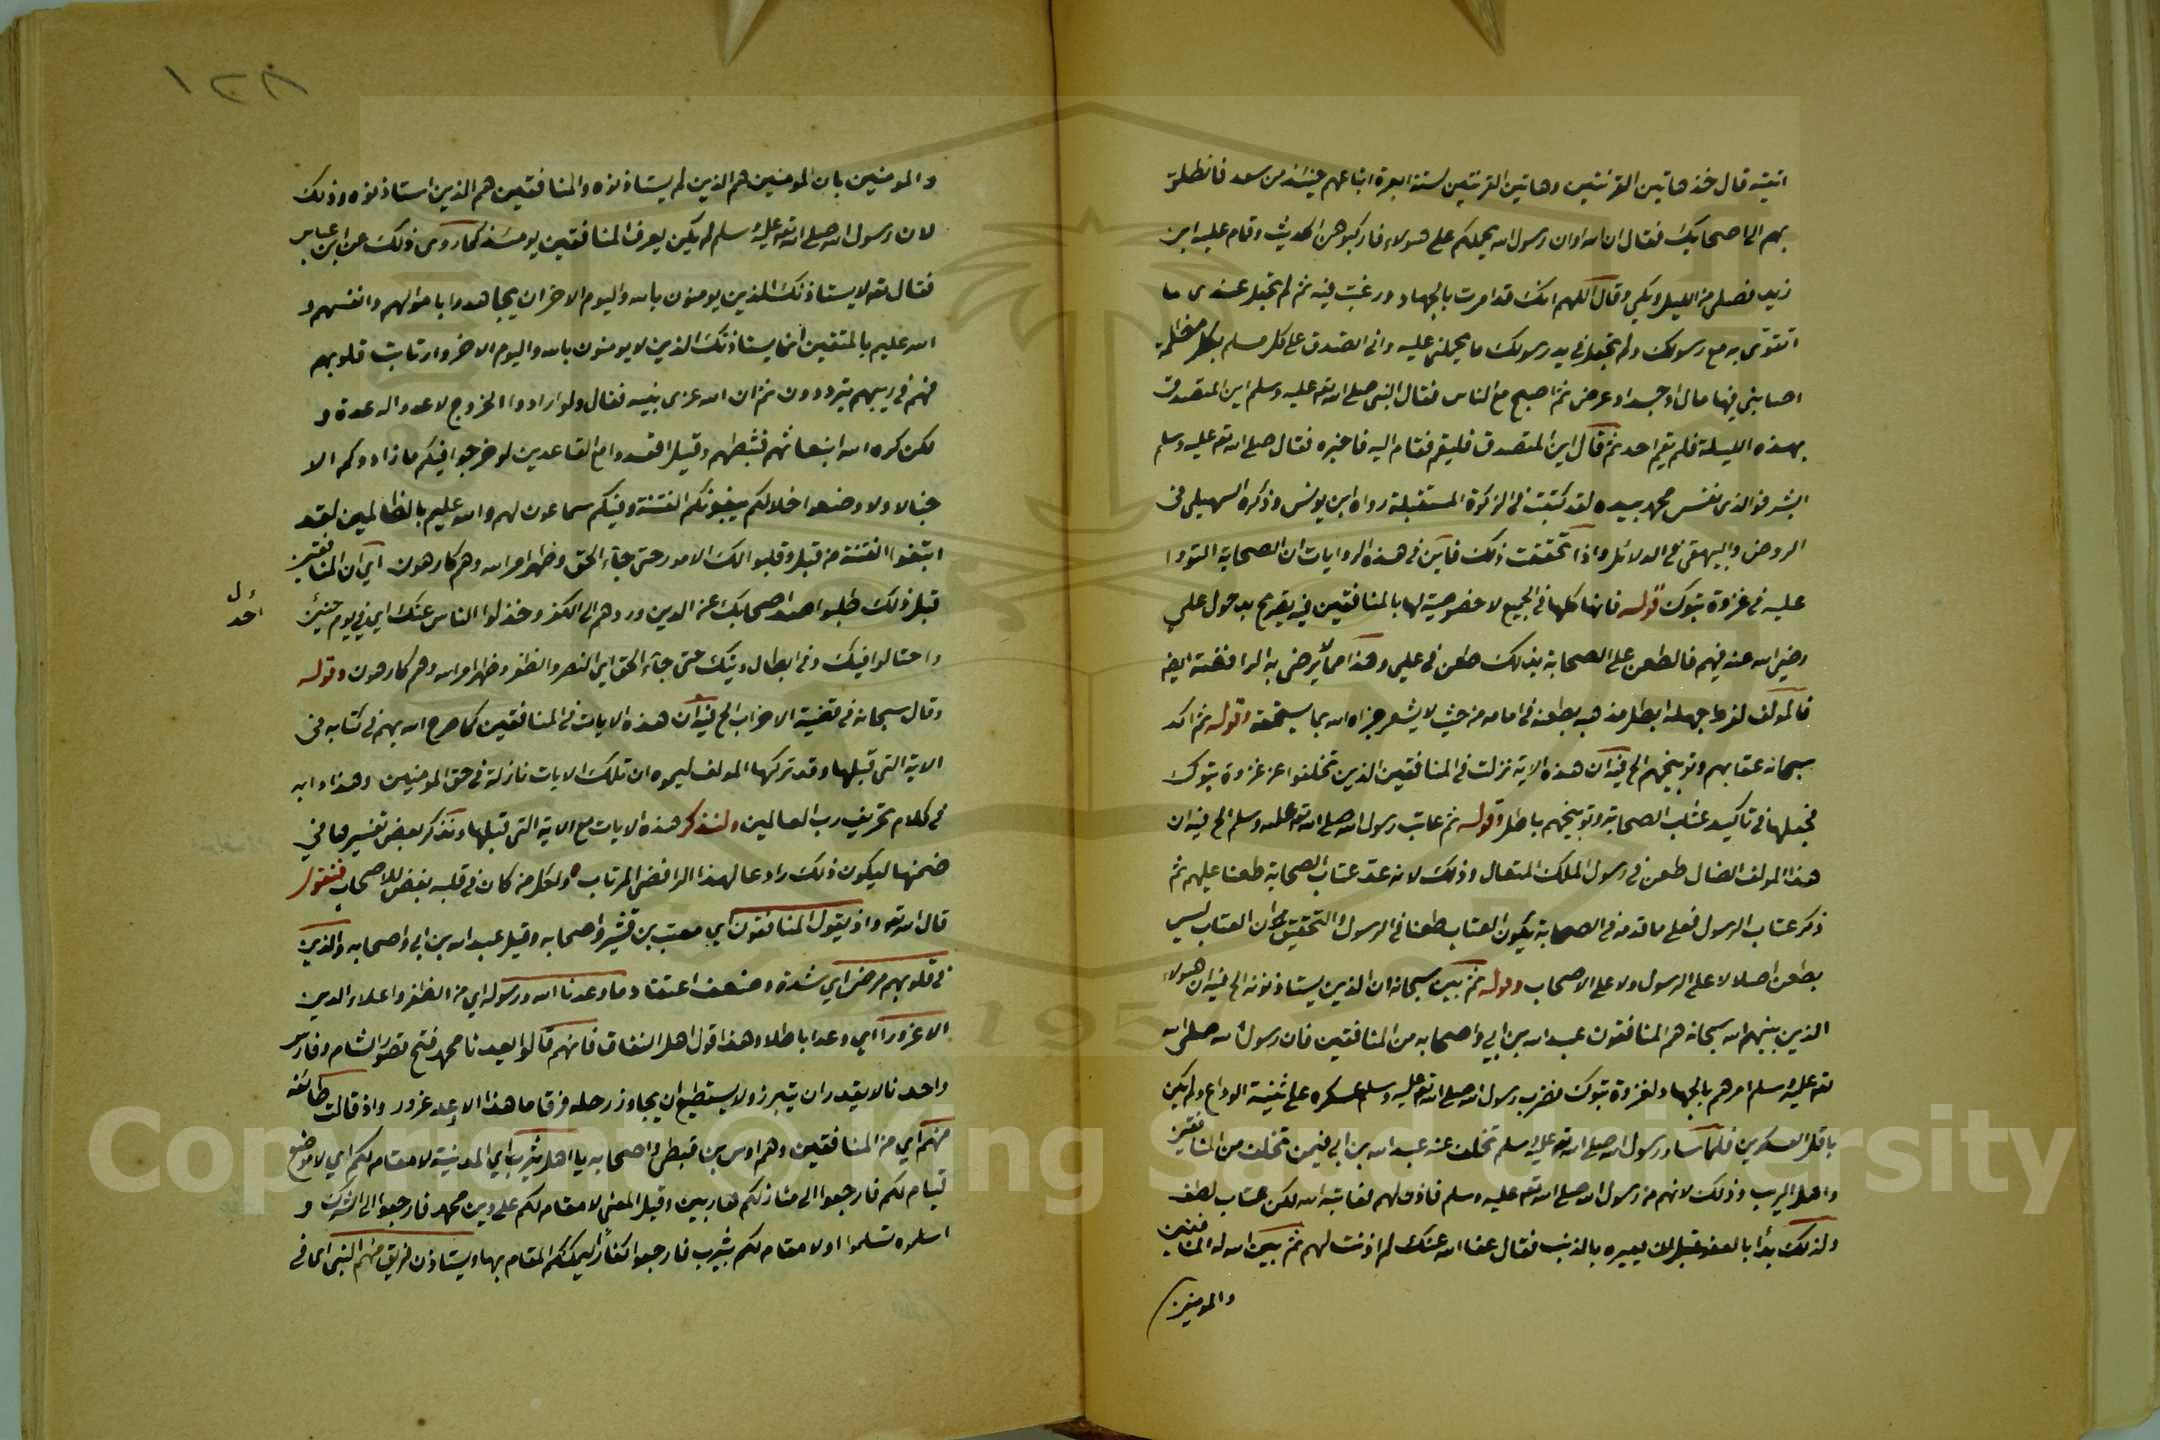 اتيته قال خذ هاتين القرينتين وهاتين القرينتين لستة ابعرة ابتاعهم حينئذ من سعد فانطلق
بهم الى اصحابك فقال ان الله او ان رسول الله يحملكم على هولاء فاركبوهن الحديث وقام علبه ابن
زيد فصلى من الليل وبكى وقال اللهم انك قد امرت بالجهاد ورغبت فيه ثم لم تجعل عندى ما
اتقوى به مع رسولك ولم تجعل في يد رسولك ما يحملني عليه واني اتصدق على كل مسلم بكل مظلمة
اصابني فيها مال او جسد او عرض ثم اصبح مع الناس فقال النبي صلى الله تعه عليه وسلم اين المتصدق
بهذه الليلة فلم يقم احد ثم قال اين المتصدق فليقم فقام اليه فاخبره فقال صلى الله تعه عليه وسلم
ابشر فوالذى نفس محمد بيده لقد كتبت في الزكوة المستقبلة رواه ابن يونس وذكره السهيلي في
الروض والبيهقي في الدلائل واذا تحققت ذلك فاين في هذه الروايات ان الصحابة التووا
عليه في غزوة تبوك قوله فانها كلها في الجميع لا خصوصية لها بالمنافقين فيه تصريح بدخول علي
رضي الله عنه فيهم فالطعن على الصحابة بذلك طعن في علي وهذا مما لا يرضى به الرافضة ايضه
فالمولف لفرط جهله ابطل مذهبه بطعنه في امامه من حيث لا يشعر جزاه الله بما يستحقه وقوله ثم اكد
سبحانه عتابهم وتوبيخهم الخ فيه ان هذه الاية نزلت في المنافقين الذين تخلفوا عن غزوة تبوك
فجعلها في تاكيد عتاب الصحابة وتوبيخهم باطل وقوله ثم عاتب رسول الله صلى الله تعه عليه وسلم الخ فيه ان
هذا المولف الضال طعن في رسول الملك المتعال وذلك لانه عد عتاب الصحابة طعنا عليهم ثم
ذكر عتاب الرسول فعلى ما قدمه في الصحابة يكون العتاب طعنا في الرسول والتحقيق ان العتاب ليس
بطعن اصلا لا على الرسول ولا على الاصحاب وقوله ثم بين سبحانه ان الذين يستاذنونه الخ فيه ان هولاء
الذين بينهم الله سبحانه هم المنافقون عبد الله بن ابي واصحابه من المنافقين فان رسول الله صلى الله
تعه عليه وسلم امرهم بالجهاد لغزوة تبوك فضرب رسول الله صلى الله تعه عليه وسلم عسكره على ثنية الوداع ولم يكن
باقل العسكرين فلما سار رسول الله صلى الله تعه عليه وسلم تخلف عنه عبد الله بن ابي فيمن تخلف من المنافقين
واهل الريب وذلك لانهم من رسول الله صلى الله تعه عليه وسلم فاذن لهم فعاتبه الله لكن عتاب لطف
ولذلك بدأ بالعفو قبل ان يعيره بالذنب فقال عفا الله عنك لم اذنت لهم ثم بين الله له المنافقين
والمومنين
١٢٨
والمومنين بان المومنين هم الذين لم يستاذنوه والمنافقين هم الذين استاذنوه وذلك
لان رسول الله صلى الله تعه عليه وسلم لم يكن يعرف المنافقين يومئذ كما روى ذلك عن ابن عباس
فقال تعه لا يستاذنك الذين يومنون بالله واليوم الاخر ان يجاهدوا باموالهم وانفسهم و
الله عليم بالمتقين انما يستاذنك الذين لا يومنون بالله واليوم الاخر وارتابت قلوبهم
فهم في ريبهم يترددون ثم ان الله عزى نبيه فقال ولو ارادوا الخروج لاعدوا له عدة و
لكن كره الله انبعاثهم فثبطهم وقيل اقعدوا مع القاعدين لو خرجوا فيكم ما زادوكم الا
خبالا ولا وضعوا خلالكم يبغونكم الفتنة وفيكم سماعون لهم والله عليم بالظالمين لقد
ابتغوا الفتنة من قبل وقلبوا لك الامور حتى جاء الحق وظهر امر الله وهم كارهون اي ان المنافقين
قبل ذلك طلبوا صد اصحابك عن الدين وردهم الى الكفر وخذلوا الناس عنك اي في يوم حينئذ
أحد ل
واحتالوا فيك وفي ابطال دينك حتى جاء الحق اي النصر والظفر وظهر امر الله وهم كارهون وقوله
وقال سبحانه في قضية الاحزاب الخ فيه ان هذه الايات في المنافقين كما صرح الله بهم في كتابه في
الاية التي قبلها وقد تركها المولف ليموه ان تلك الايات نازلة في حق المومنين وهذا دابه
في كلام تحريف رب العالمين ولنذكر هذه الايات مع الاية التي قبلها ونذكر بعض تفسيرها في
ضمنها ليكون ذلك رادعا لهذا الرافضي المرتاب ولكل من كان في قلبه بغض للاصحاب فنقول
قال الله تعه واذ يقول المنافقون اي معتب بن قشير واصحابه وقيل عبد الله بن ابي واصحابه والذين
في قلوبهم مرض اي شدة وضعف اعتقاد ما وعدنا الله ورسوله اي من الظفر واعلاء الدين
الا غرورا اي وعدا باطلا وهذا قول اهل النفاق فانهم قالوا يعدنا محمد فتح قصور الشام وفارس
واحدنا لا يقدر ان يتبرز ولا يستطيع ان يجاوز رحله فرقا ما هذا الا وعد غرور واذ قالت طائفة
منهم اي من المنافقين وهم اوس بن قبطي واصحابه يا اهل يثرب اي المدينة لا مقام لكم اي لا موضع
قيام لكم فارجعوا الى منازلكم هاربين وقيل المعنى لا مقام لكم على دين محمد فارجعوا الى الشرك و
اسلموه تسلموا او لا مقام لكم بيثرب فارجعوا كفارا ليمكنكم المقام بها ويستاذن فريق منهم النبي اى في
Copyright © King Saud University
1957